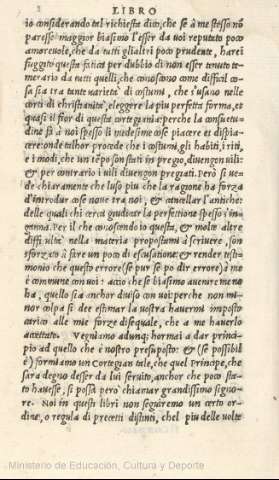 LIBRO
io considerando tal richiesta dico, che se à me stesso nō
paresse maggior biasimo l'esser da voi reputato poco
amoreuole, che da tutti gli altri poco prudente, harei
fuggito questa fatica per dubbio di non esser tenuto te-
merario da tutti quelli, che conoscono come difficil co-
sa sia tra tante varietà di costumi, che s'usano nelle
corti di christianità, eleggere la piu perfetta forma, et
quasi il fior di questa cortegiania: perche la consuetu-
dine fà à noi spesso le medesime cose piacere et dispia-
cere: onde talhor procede che i costumi, gli habiti, i riti,
e i modi, che un tēpo son stati in pregio, diuengon uili:
& per contrario i uili diuengon pregiati. Però si ve-
de chiaramente che l'uso piu che la ragione ha forza
d'introdur cose noue tra noi, & cancellar l'antiche:
delle quali chi cerca giudicar la perfettione spesso s'in-
ganna. Per il che conoscendo io questa, & molte altre
difficultà nella materia propostami à scriuere, son
sforzato à fare un poco di escusatione: & render testi-
monio che questo errore (se pur se po dir errore) à me
è commune con voi: accio che se biasimo auenirmene
ha, quello sia anchor diuiso con voi: perche non mi-
nor colpa si dee estimar la vostra hauermi imposto
carico alle mie forze disequale, che à me hauerlo
accettato. Vegniamo adunq; hormai à dar princi-
pio ad quello che è nostro presuposto: & (se possibil
è) formiamo un Cortegian tale, che quel Principe, che
sarà degno d'esser da lui seruito, anchor che poco sta-
to hauesse, si possa però chiamar grandissimo signo-
re. Noi in questi libri non seguiremo un certo or-
dine, o regula di precetti distinti, che'l piu delle volte
Ministerio de Educación, Cultura y Deporte